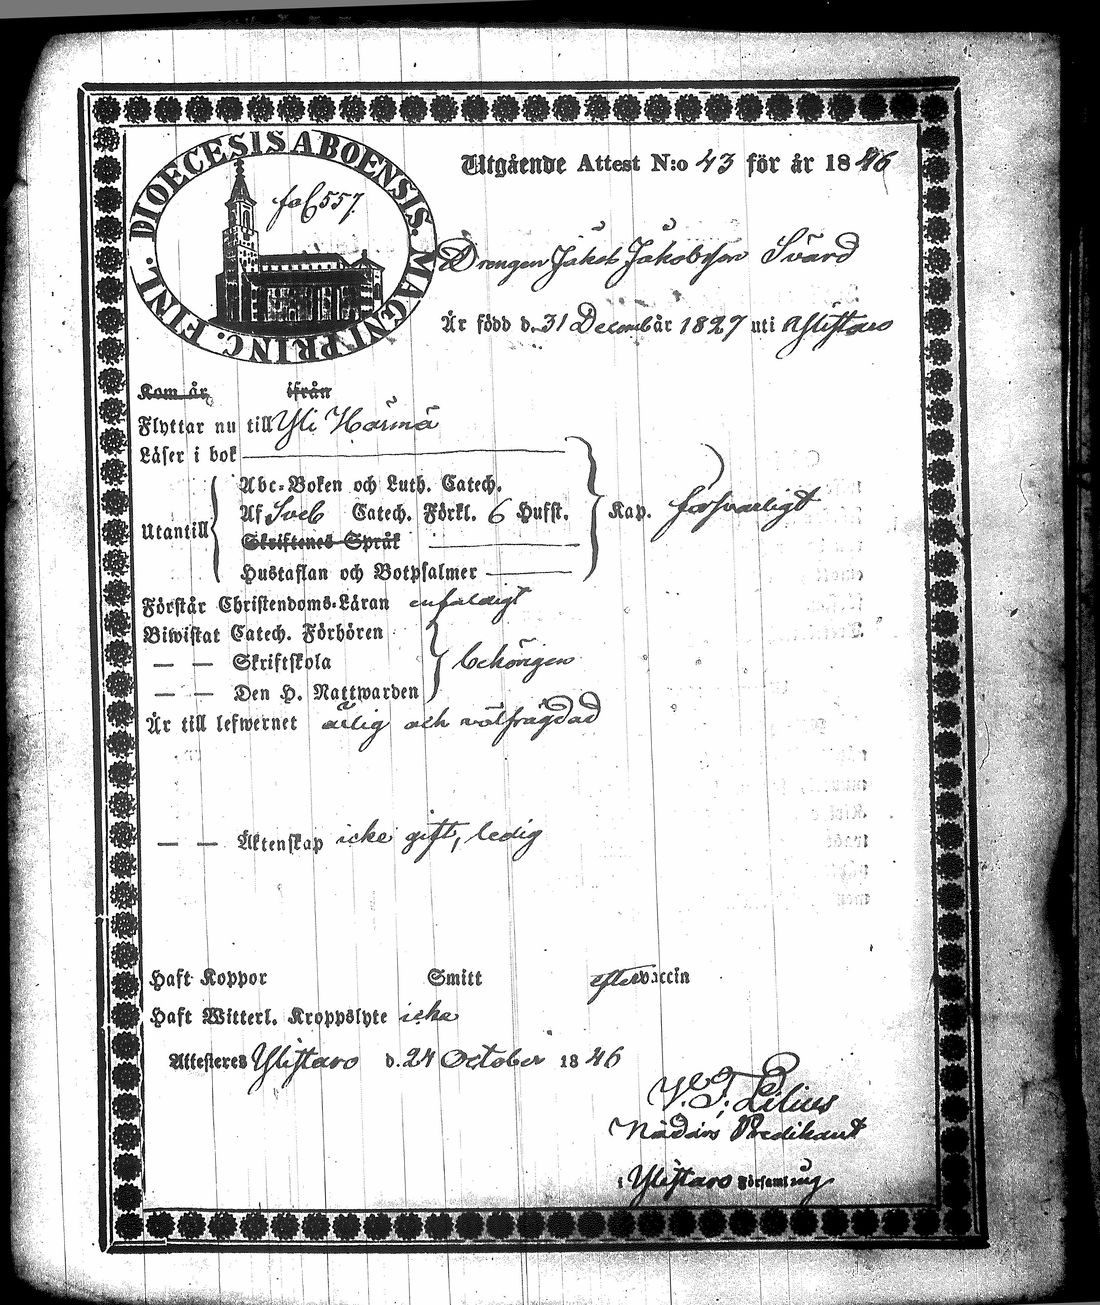 DIOECESIS ABOENSIS. MAGNI PRINC. FINL.
fol 557.
Utgående Attest N:o 43 för år 1846
Drengen Jakob Jakobsson Svärd
Är född d. 31 Decemb år 1827 uti Ylistaro
Kom år, ifrån
Flyttar nu till Yli Härmä
Läser i bok
Utantill
Abc-Boken och Luth. Catech.
Af Sveb Catech. Förkl. 6 Hufst. Kap. försvarligt
Skriftenes Språk
Hustaflan och Botpsalmer
Förstår Christendoms-Läran enfaldigt
Biwistat Catech. Förhören
— — Skriftskola behörigen
— — Den H. Nattwarden
Är till lefwernet ärlig och välfrägdad
— — Äktenskap icke gift, ledig
Haft Koppor Smitt efter vaccin
Haft Witterl. Kroppslyte icke
Attesteres Ylistaro d. 24 October 1846
Lilius
Nådårs Predikant
i Ylistaro Församling